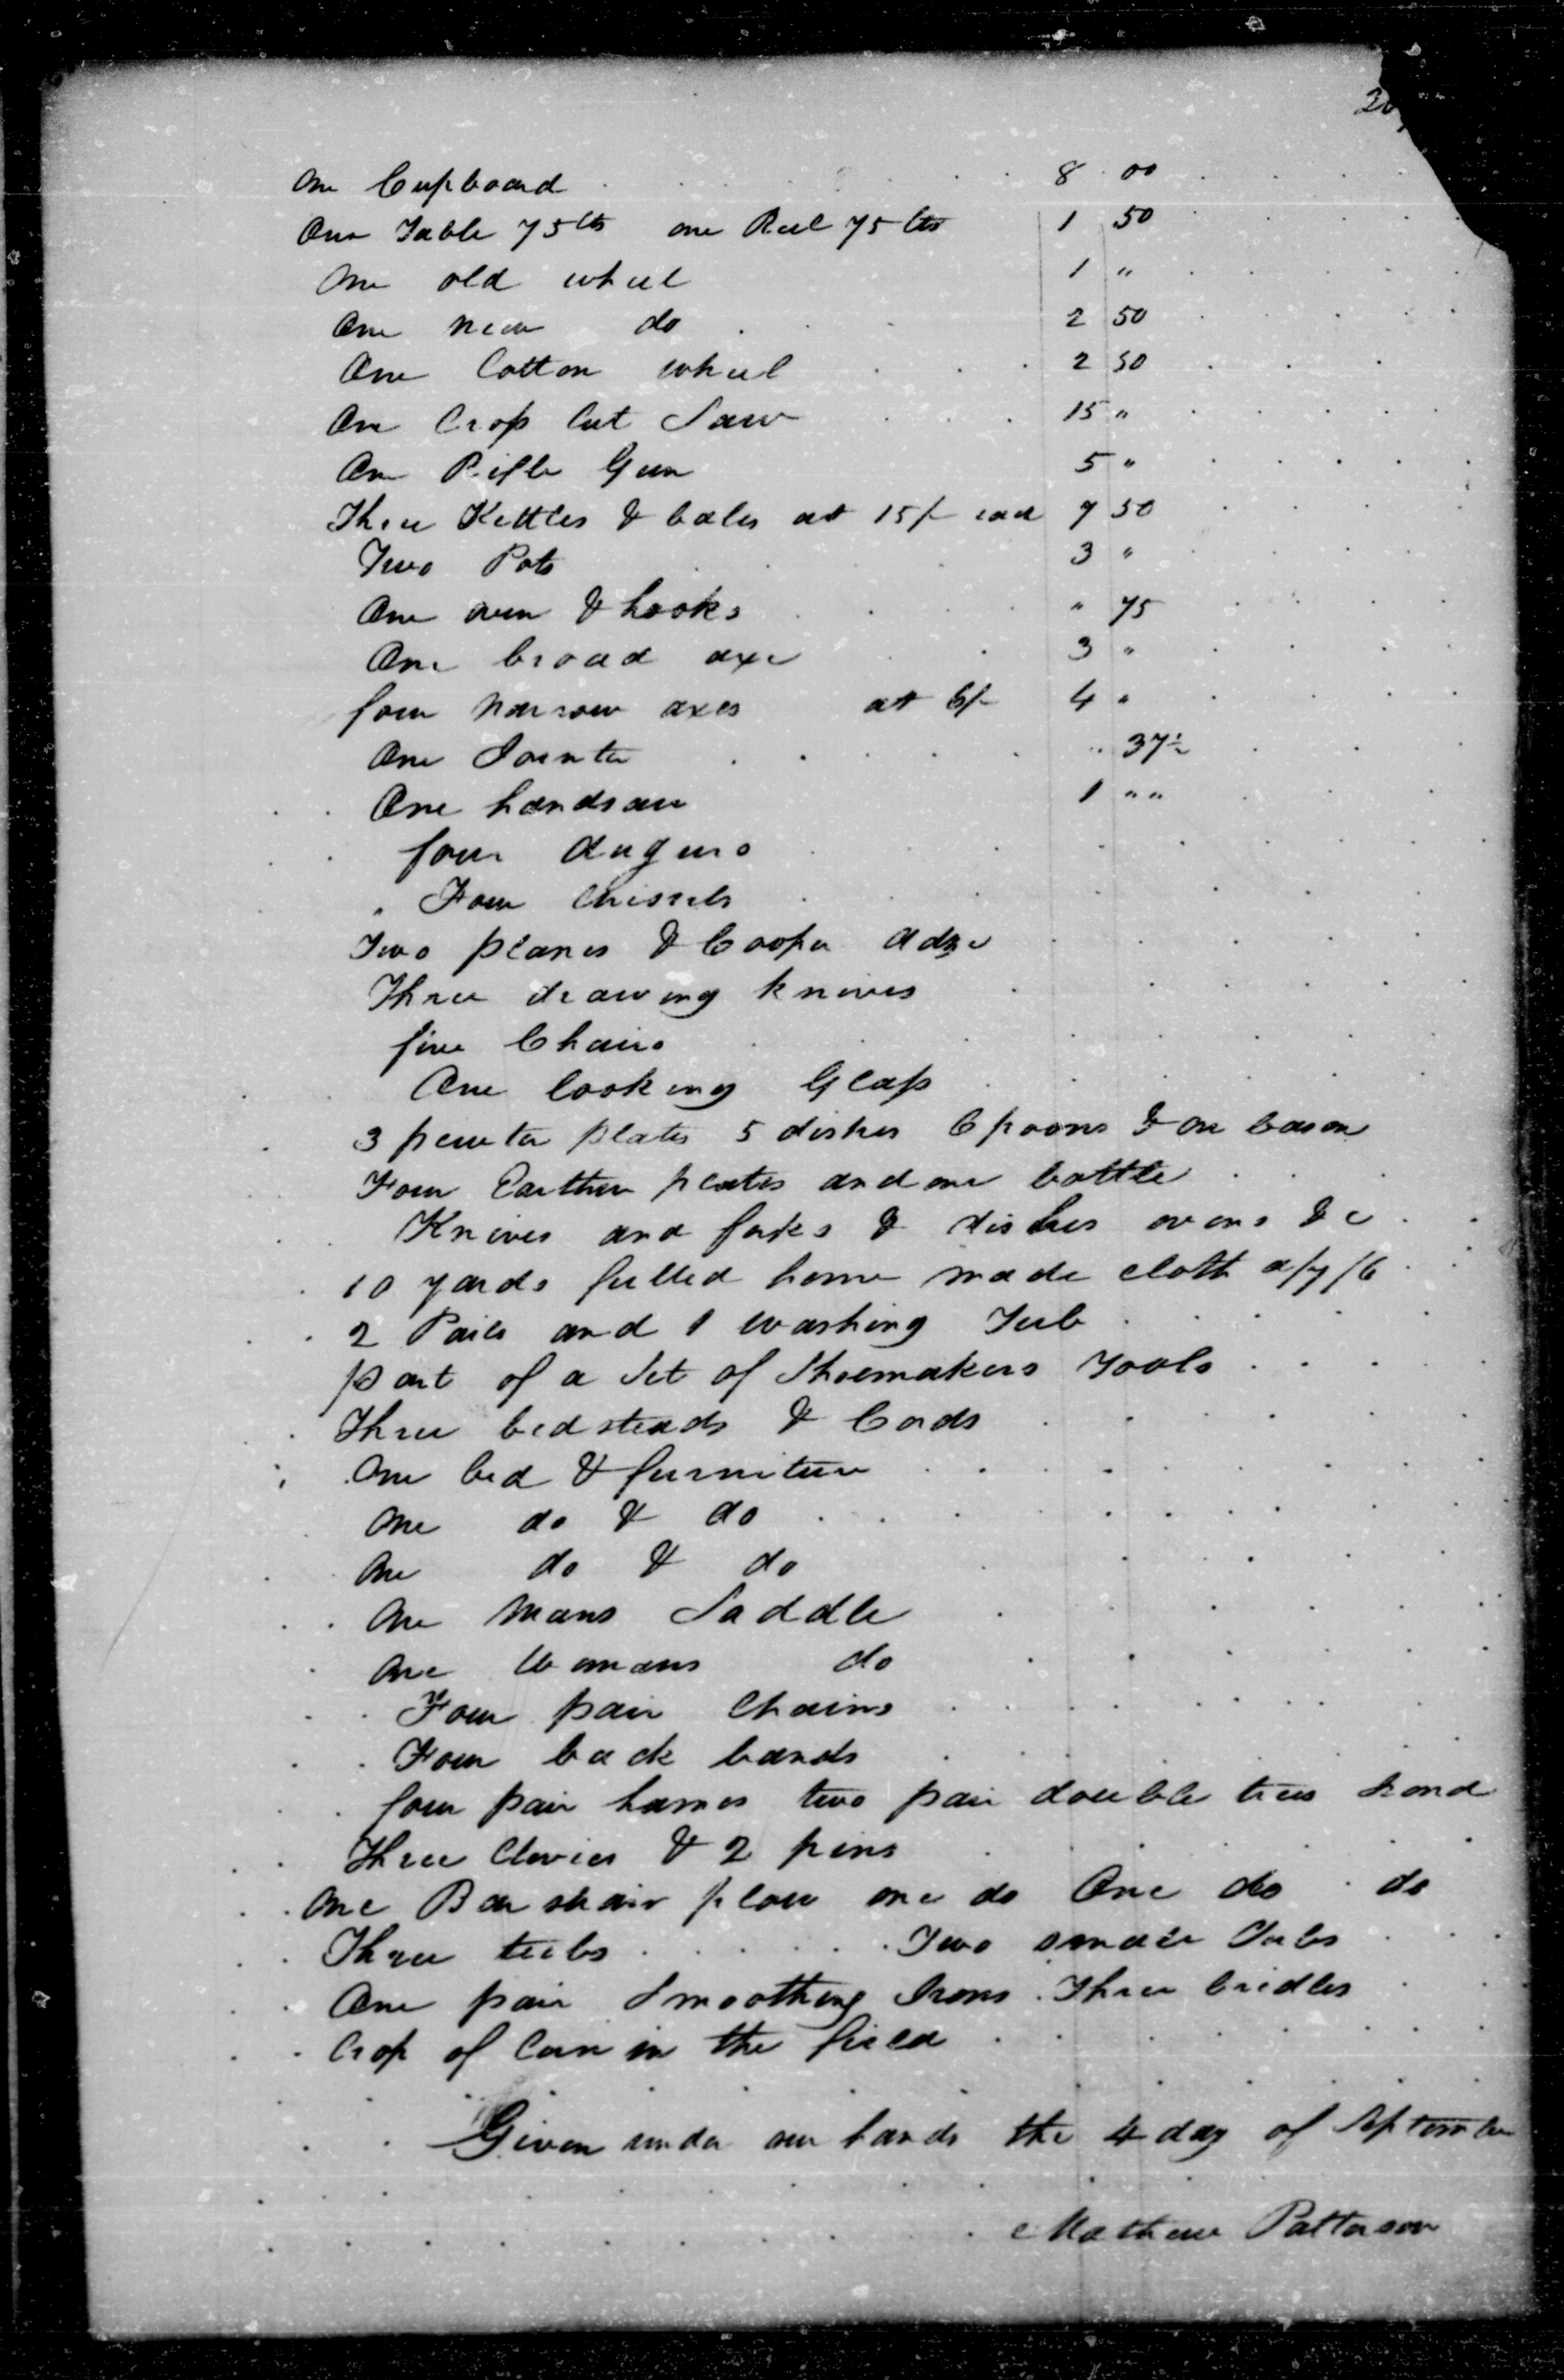 20
One Cupboard 8 00
One Table 75 cts one Reel 75 cts 1 50
One old wheel 1 "
One new do 2 50
One Cotton wheel 2 50
One Crop Cut Saw 15 "
One Rifle Gun 5 "
Three Kettles & bales at 15/- each 7 50
Two Pots 3 "
One oven & hooks " 75
One broad axe 3 "
four narrow axes at 6/- 4 "
One Jointer " 37½
One handsaw 1 " "
four augurs
" Four Chissels
Two planes & Cooper adze
Three drawing knives
five Chairs
One looking Glass
3 pewter plates 5 dishes 6 poons & one bason
Four Earthen plates and one bottle
Knives and forks & dishes ovens &c
10 yards fulled home made cloth a/7/6
2 Pails and 1 washing Tub
part of a Set of Shoemakers Tools
Three bedsteads & Cords
One bed & furniture
One do & do
One do & do
One mans Saddle
One Womans do
Four pair Chains
Four back bands
four pair hames two pair double trees
Three Clevies & 2 pins
One Barshair plow one do One do do
Three tubs Two smale Tubs
One pair Smoothing Irons Three bridles
Crop of Corn in the field
Given under our hands the 4 day of September
Mathew Patterson